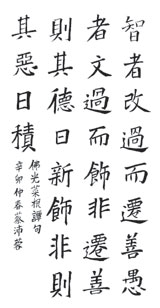 智者改過而遷善愚
者文過而飾非遷善
則其德日新飾非則
其惡日積
佛光菜根譚句
辛卯仲春蔡沛蓉